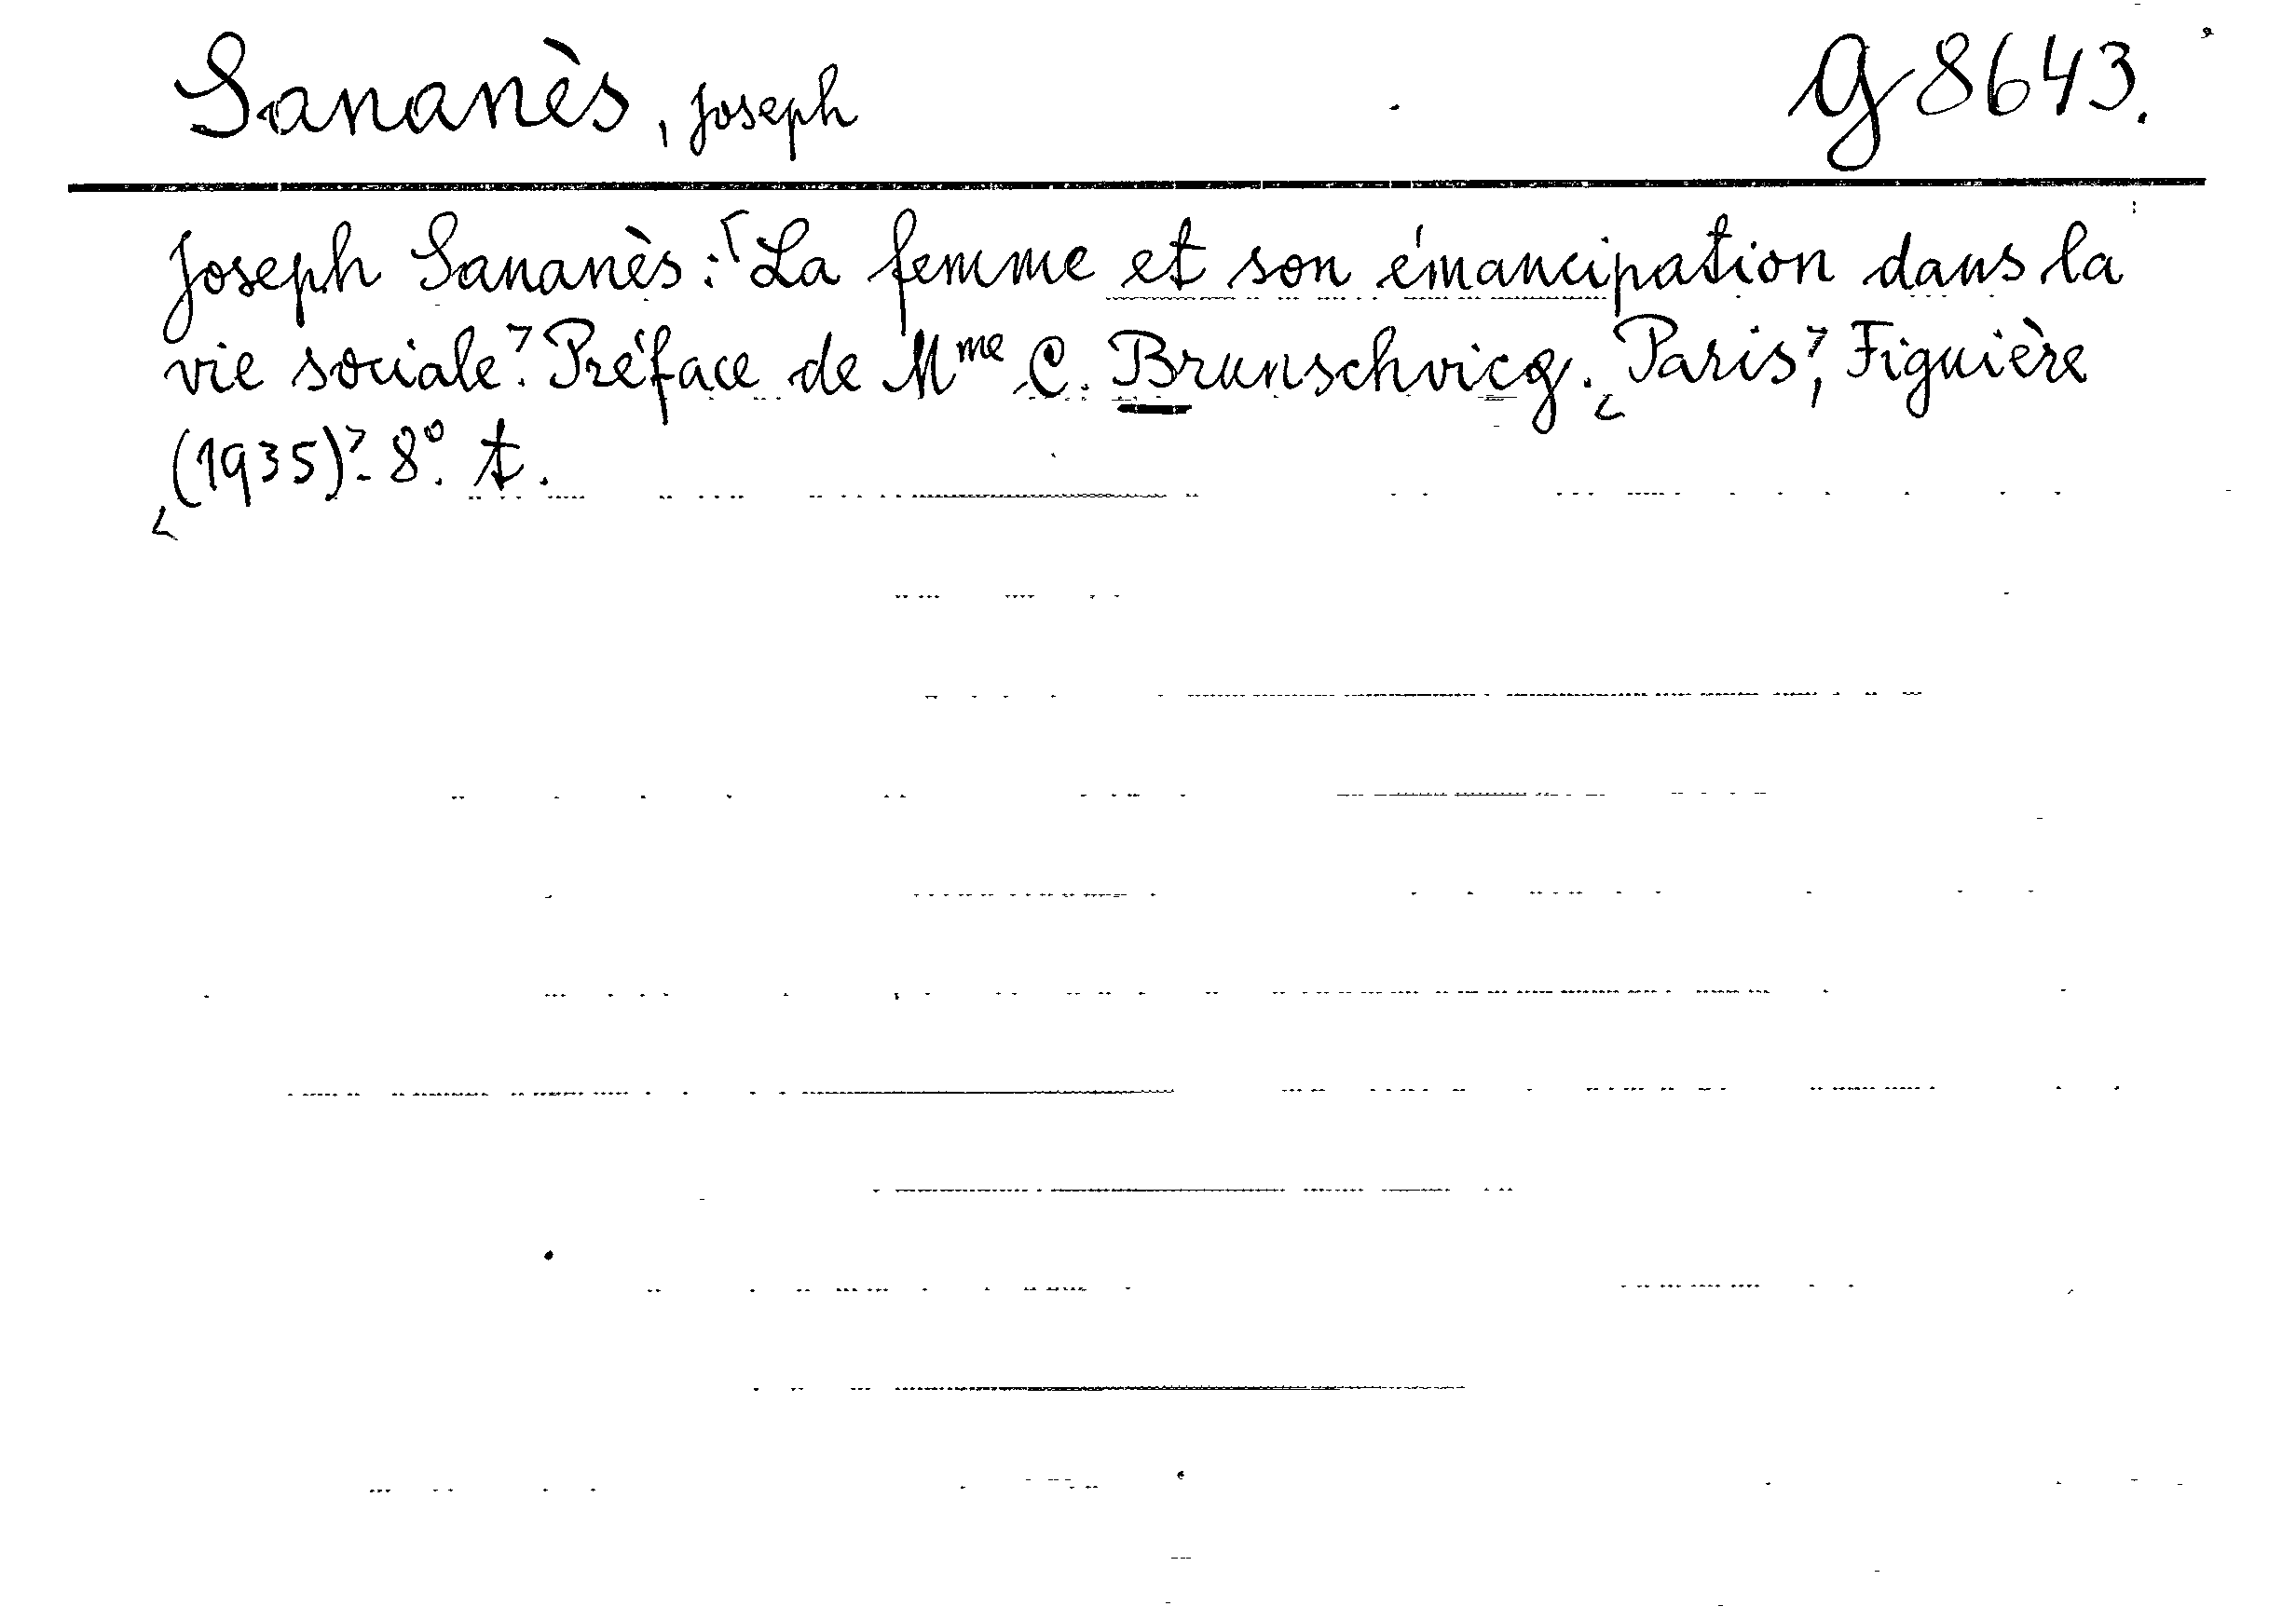 Sananès, Joseph G 8643.
Joseph Sananès: La femme et son émancipation dans la
vie sociale. Préface de Mme C. Brunschvicg. Paris, Figuière
(1935). 8º. t.